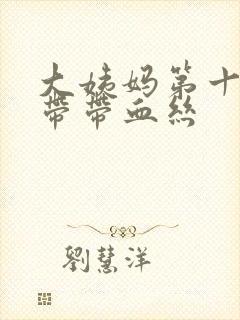 大姨妈第十
带带血丝
劉慧洋